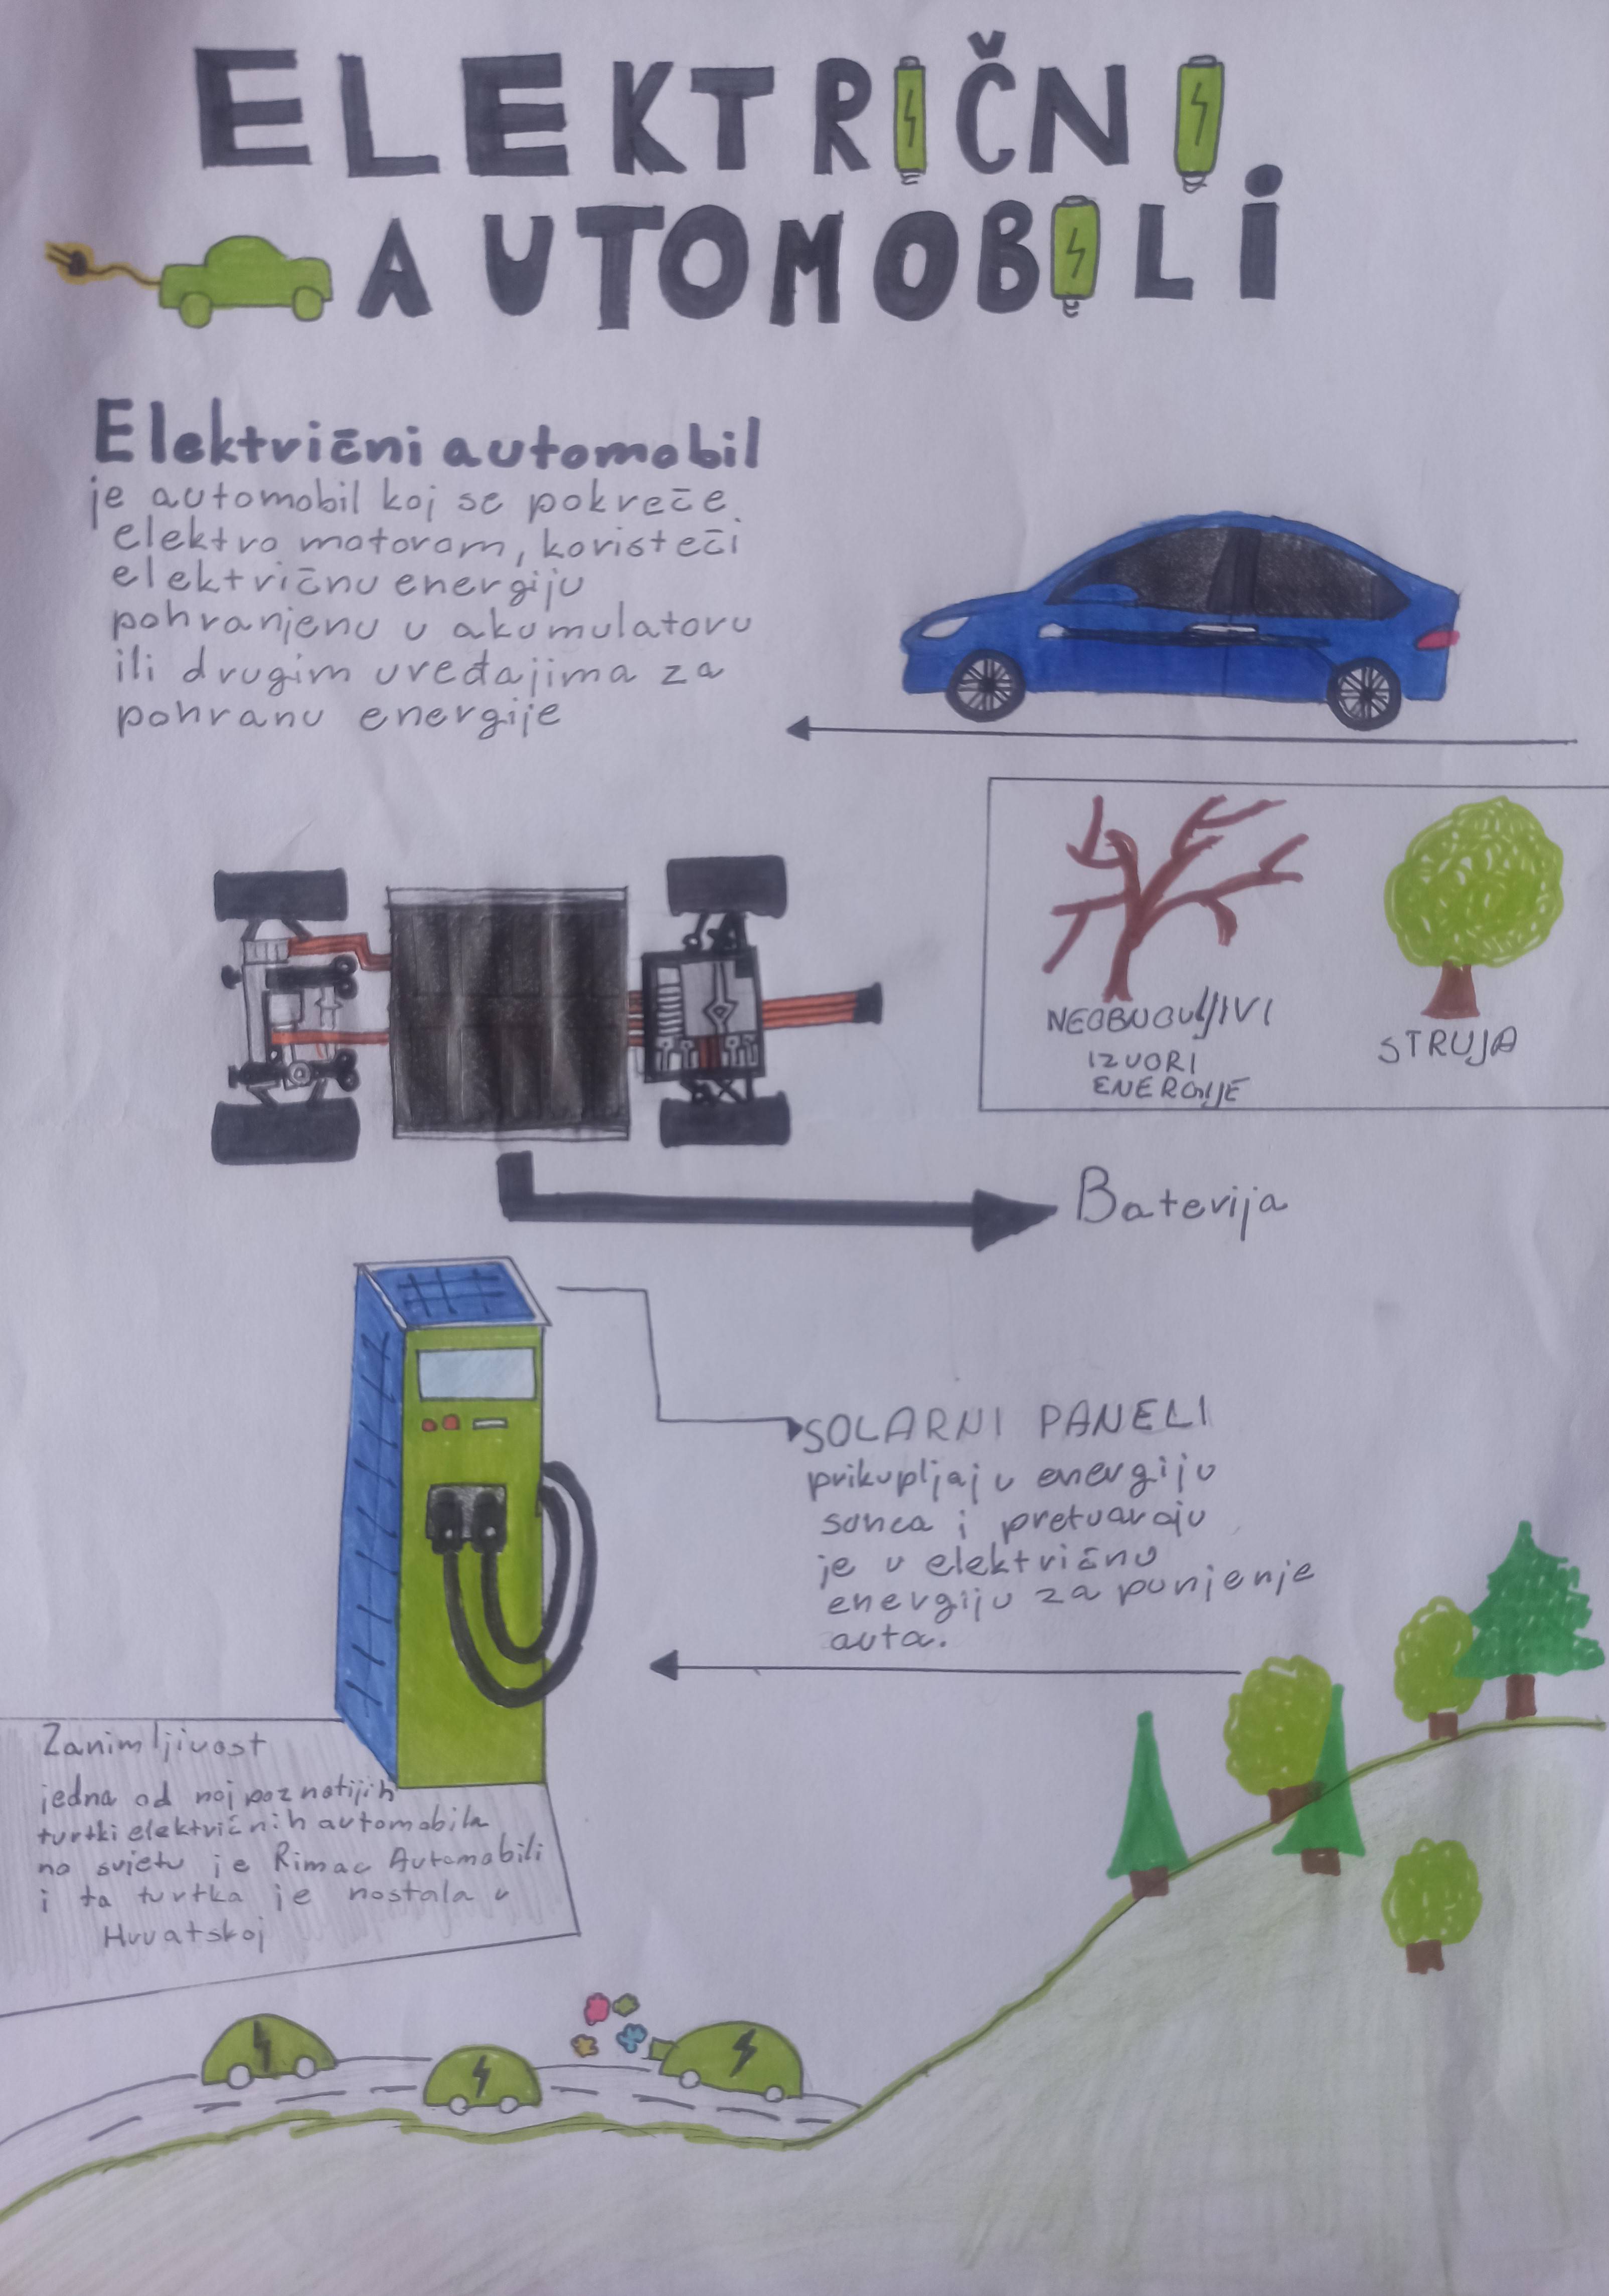 ELEKTRIČNI
AUTOMOBILI
Električni automobil
je automobil koj se pokreče
elektro motoram, koristeči
električnu energiju
pohranjenu u akumulatoru
ili drugim uređajima za
pohranu energije
NEOBNOVLJIVI
IZVORI
ENERGIJE
STRUJA
Baterija
SOLARNI PANELI
prikupljaju energiju
sunca i pretvaraju
je u električnu
energiju za punjenje
auta.
Zanimljivost
jedna od najpoznatijih
tvrtki električnih automobila
na svjetu je Rimac Automobili
i ta tvrtka je nastala u
Hrvatskoj